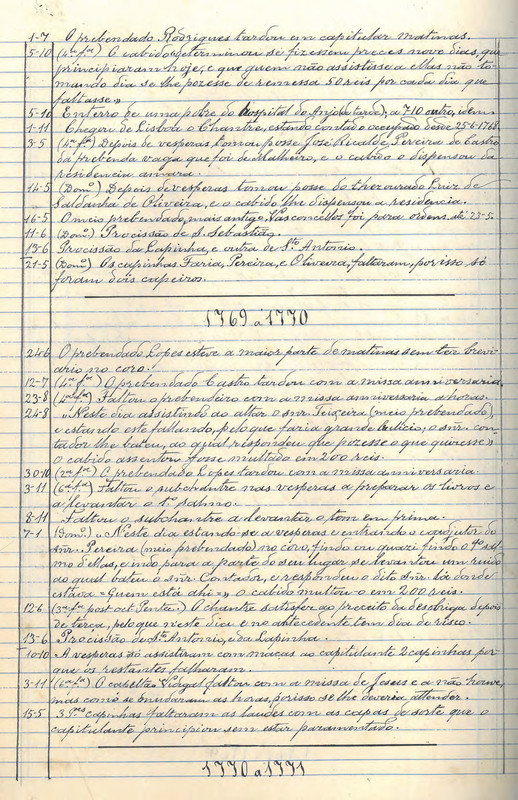 1-7 O prebendado Rodrigues tardou em capitular matinas.
5-10 (4ª fª) O cabido determinou se fizessem preces nove dias, que
principiaram hoje, e que quem não assistisse a ellas não to-
mando dia se lhe pozesse de remessa 50 reis por cada dia que
faltasse»
5-10 Enterro de uma pobre do hospital do Anjo (de tarde), a 7-10 outro, idem.
1-11 Chegou de Lisboa o Chantre, estando contado occupado desde 25-6-1768.
3-5 (4ª fª) Depois de vesperas tomou posse José Ricalde Pereira de Castro
da prebenda vaga que foi de Malheiro, e o cabido o dispensou da
residencia
14-5 (Domº) Depois de vesperas tomou posse do thesourado Luiz de
Saldanha de Oliveira, e o cabido lhe dispensou a residencia.
16-5 O meio prebendado mais antigo Vasconcellos foi para ordens até 23-5.
11-6 (Domº) Procissão de S. Sebastião.
13-6 Procissão da Lapinha, e outra de Stº Antonio.
21-5 (Domº) Os capinhas Faria, Pereira, e Oliveira, faltaram, por isso só
foram dois capeiros.
1769 a 1770
24-6 O prebendado Lopes esteve a maior parte de matinas sem ter brevi-
ario no coro.
12-7 (4ª fª) O prebendado Castro tardou com a missa anniversaria.
23-8 (4ª fª) Faltou o prebendeiro com a missa anniversaria a horas.
24-8 «Neste dia assistindo ao altar o snr. Teixeira (meio prebendado),
e estando este fallando, pelo que faria grande o snr. con-
tador lhe bateu, ao qual respondeu que pozesse o que quizesse»
o cabido assentou fosse multado em 200 reis.
30-10 (2ª fª) O prebendado Lopes tardou com a missa anniversaria.
3-11 (6ª fª) Faltou o subchantre nas vesperas a preparar os livros e
a levantar o 1º salmo.
8-11 Faltou o subchantre a levantar o tom em prima.
7-1 (Domº) «Neste dia estando-se a vesperas e entrando o coadjutor do
snr. Pereira (meio prebendado) no coro, findo ou quazi findo o 4º sal-
mo d'ellas, e indo para a parte do seu lugar se levantou um ruido
ao qual bateu o snr. Contador, e respondeu o dito snr. lá donde
estava = Quem está ahi =» o cabido multou-o em 200 reis.
12-6 (3ª fª post oct. Pentec.) O chantre satisfez ao preceito da desobriga depois
de terça, pelo que neste dia e no antecedente tem dia de risco.
13-6 Procissão de Stº Antonio, e da Lapinha.
10-10 A vesperas só assistiram com maças ao capitulante 2 capinhas por-
que os restantes faltaram.
3-11 (6ª fª) O capellão Vidigal faltou com a missa de Jesus e a não houve,
mas como se mudaram as horas, por isso se lhe deveria attender.
15-5 3 Pes capinhas faltaram ás laudes com as capas de sorte que o
capitulante principiou sem estar paramentado.
1770 a 1771